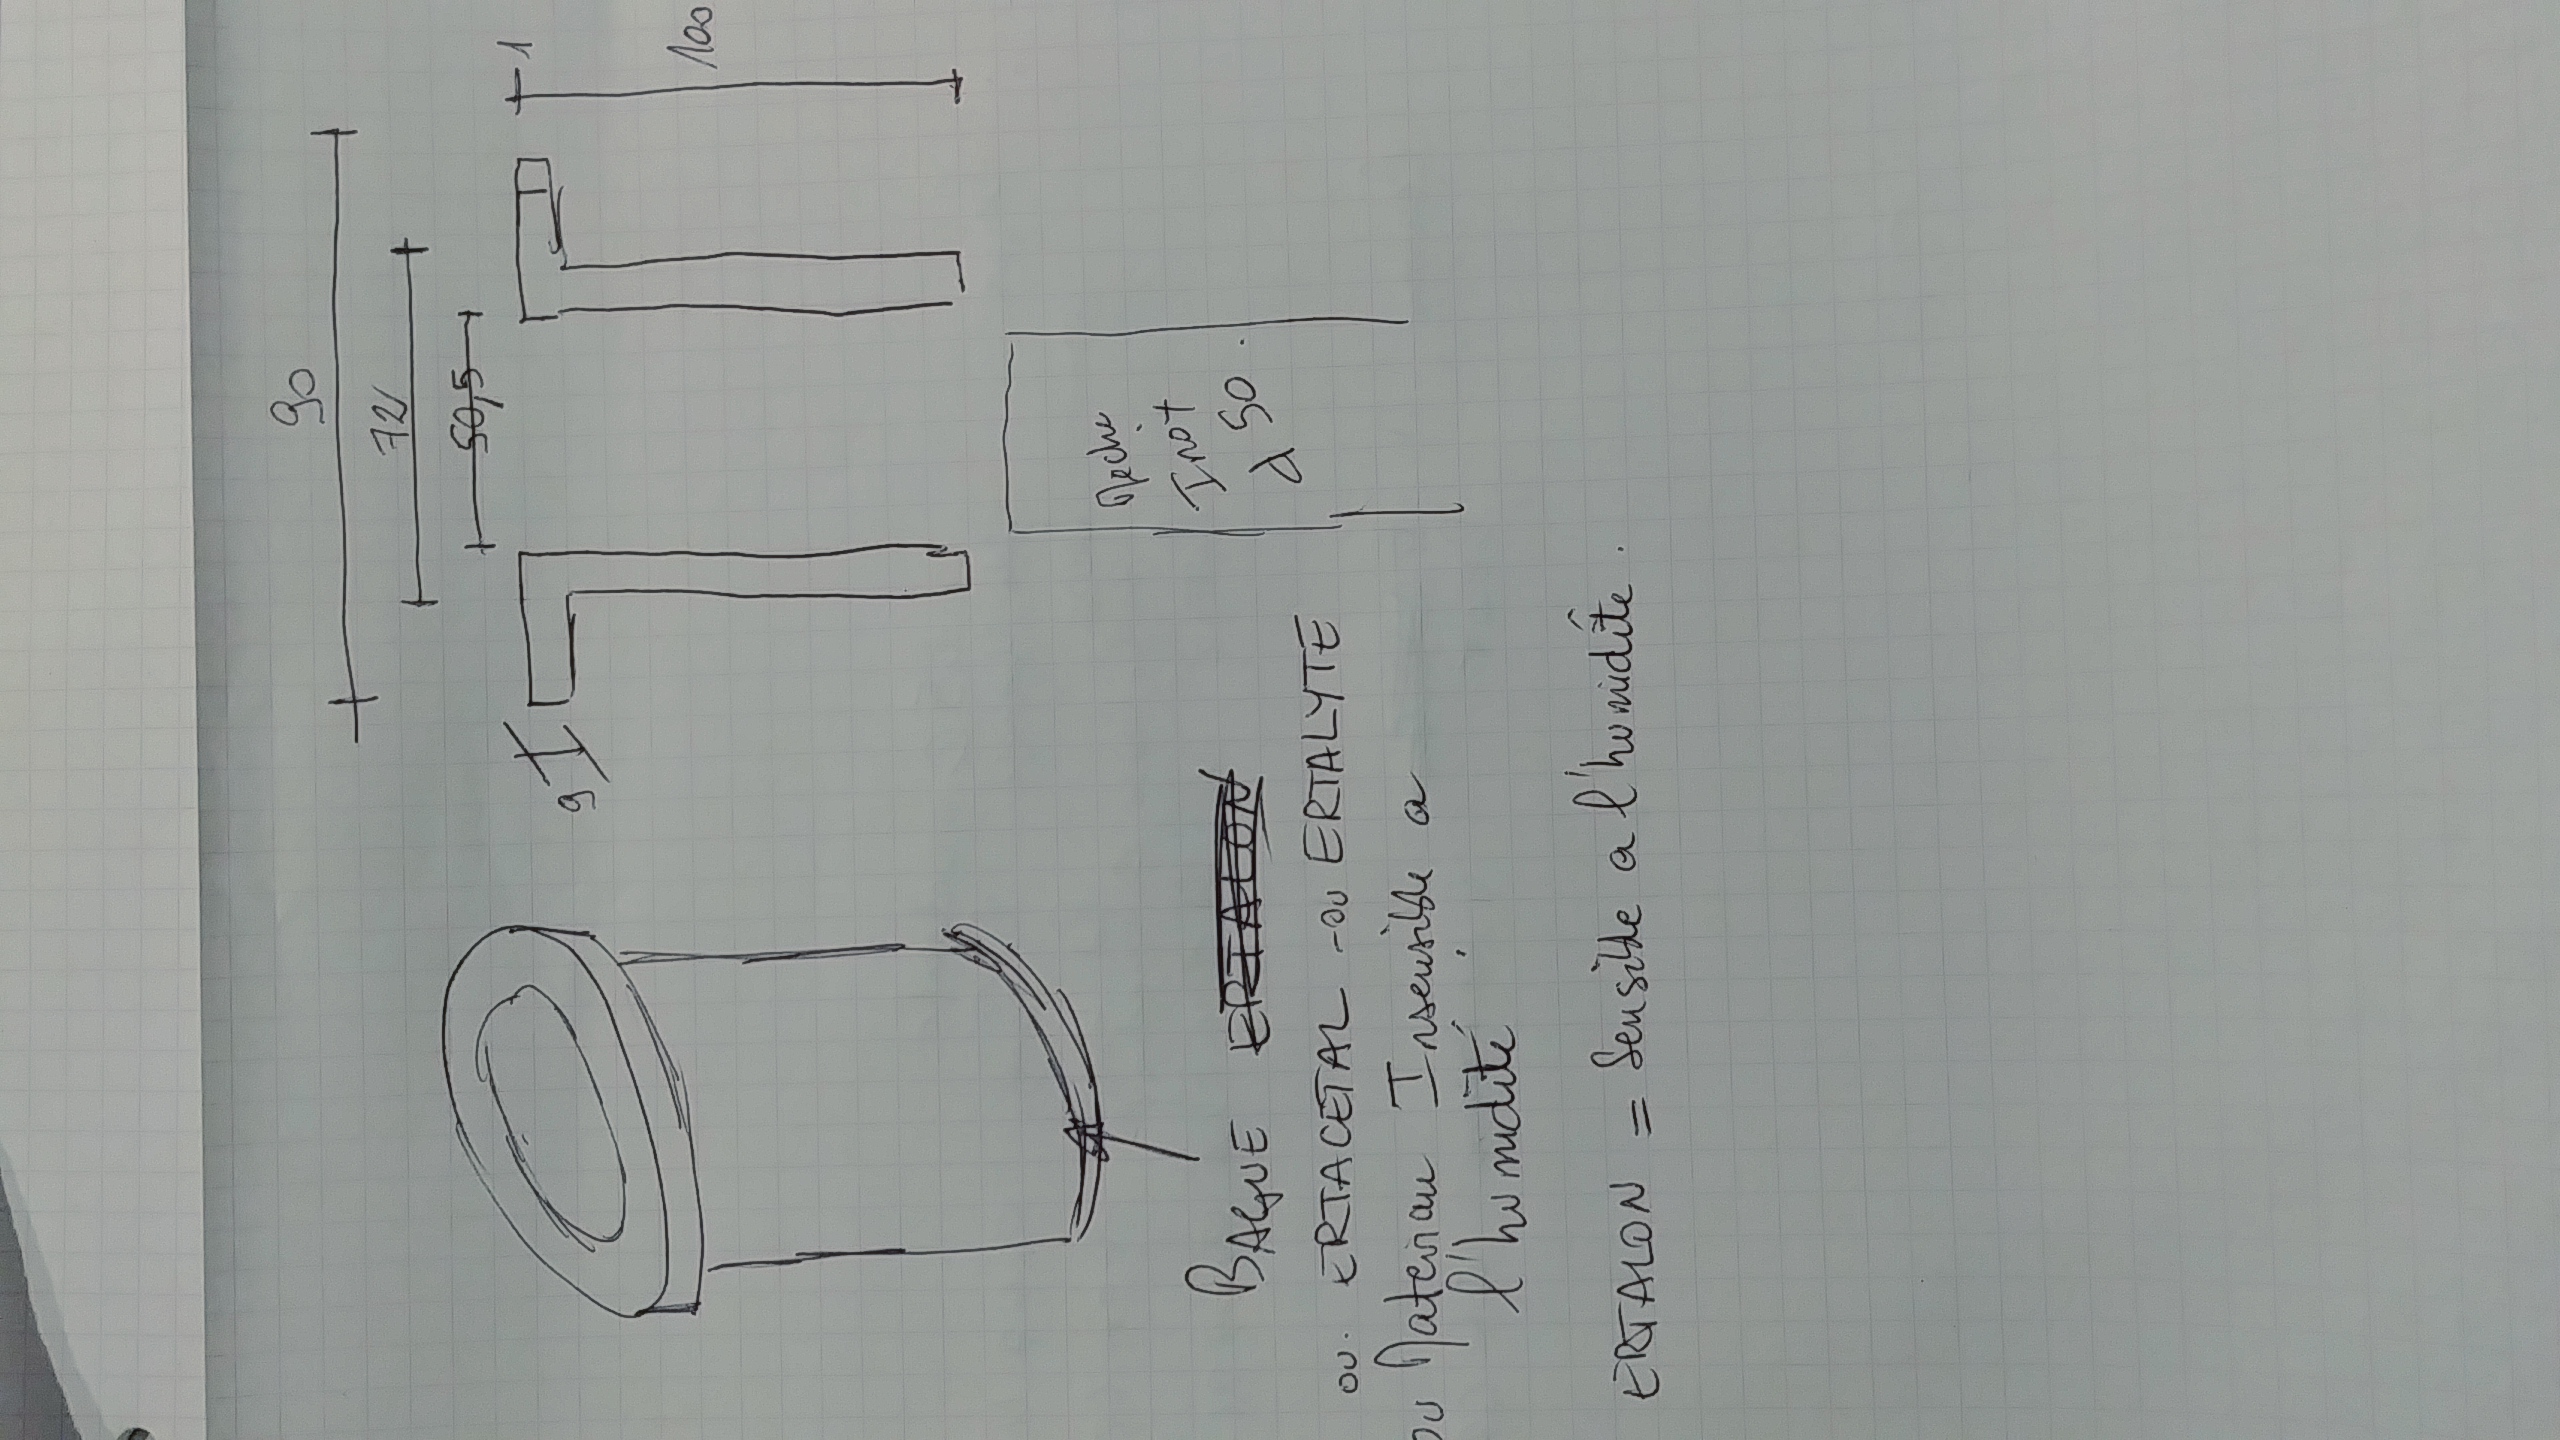 90
72
50,5
1
100
9
Meche
Inox
50.
BAGUE ERTALON
ou. ERTACETAL - ou ERTALYTE
ou Materiau Insensible a
l'humidité
ERTALON = Sensible a l'humidité.